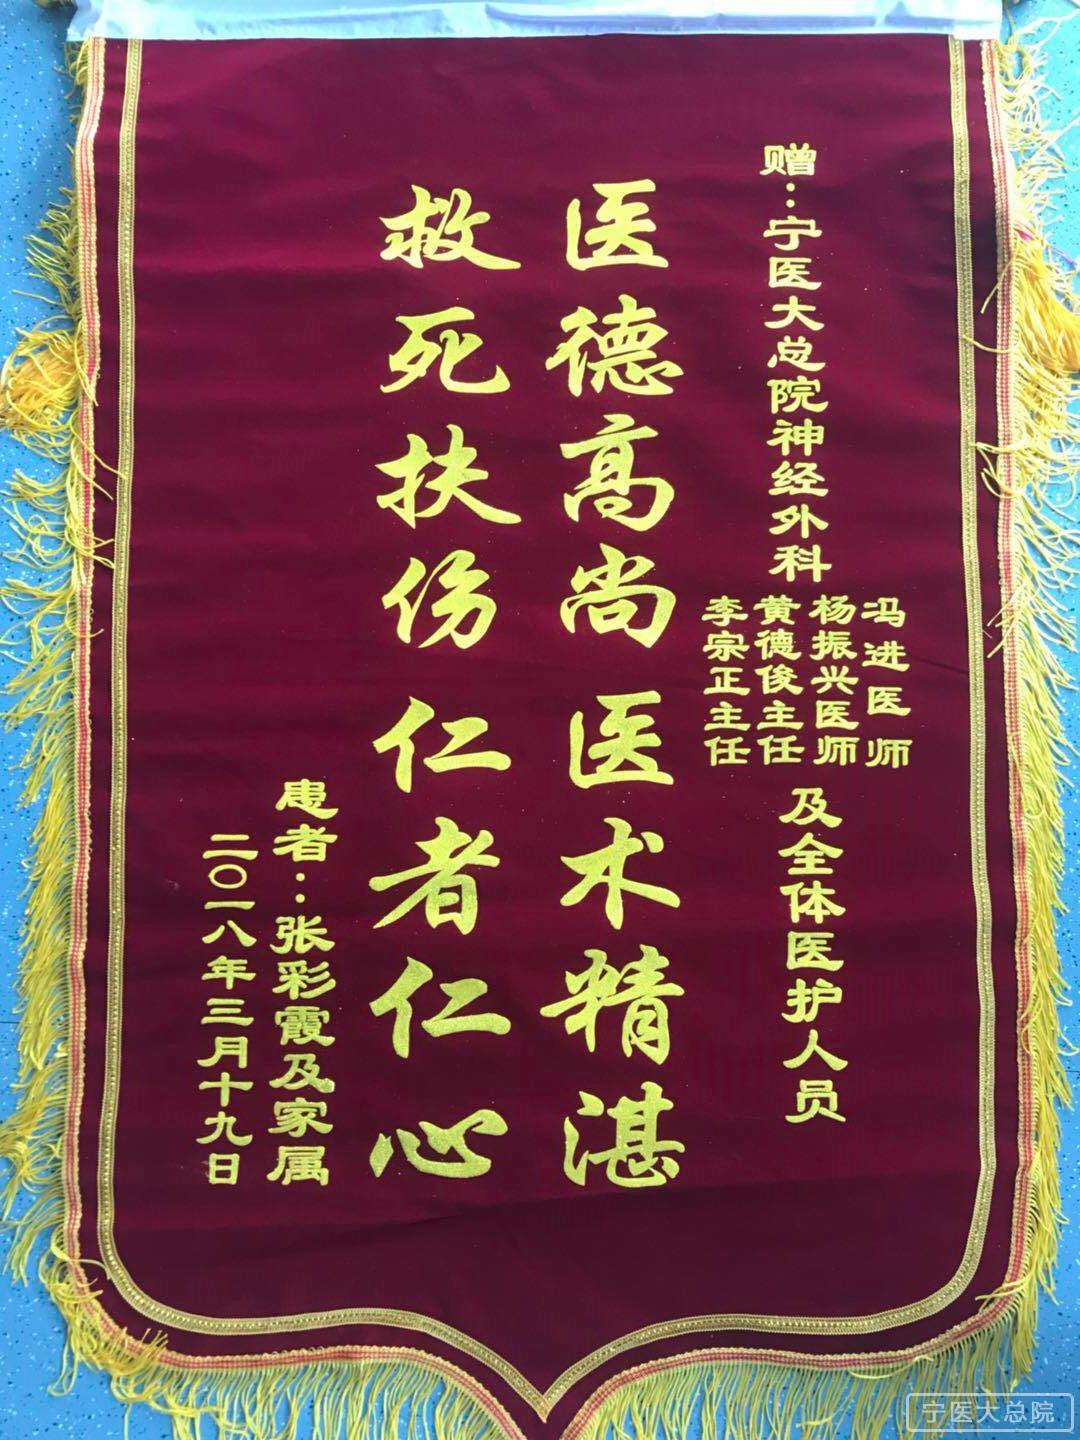 赠：宁医大总院神经外科
冯进医师
杨振兴医师
黄德俊主任
李宗正主任
及全体医护人员
医德高尚 医术精湛
救死扶伤 仁者仁心
患者：张彩霞及家属
二〇一八年三月十九日
宁医大总院